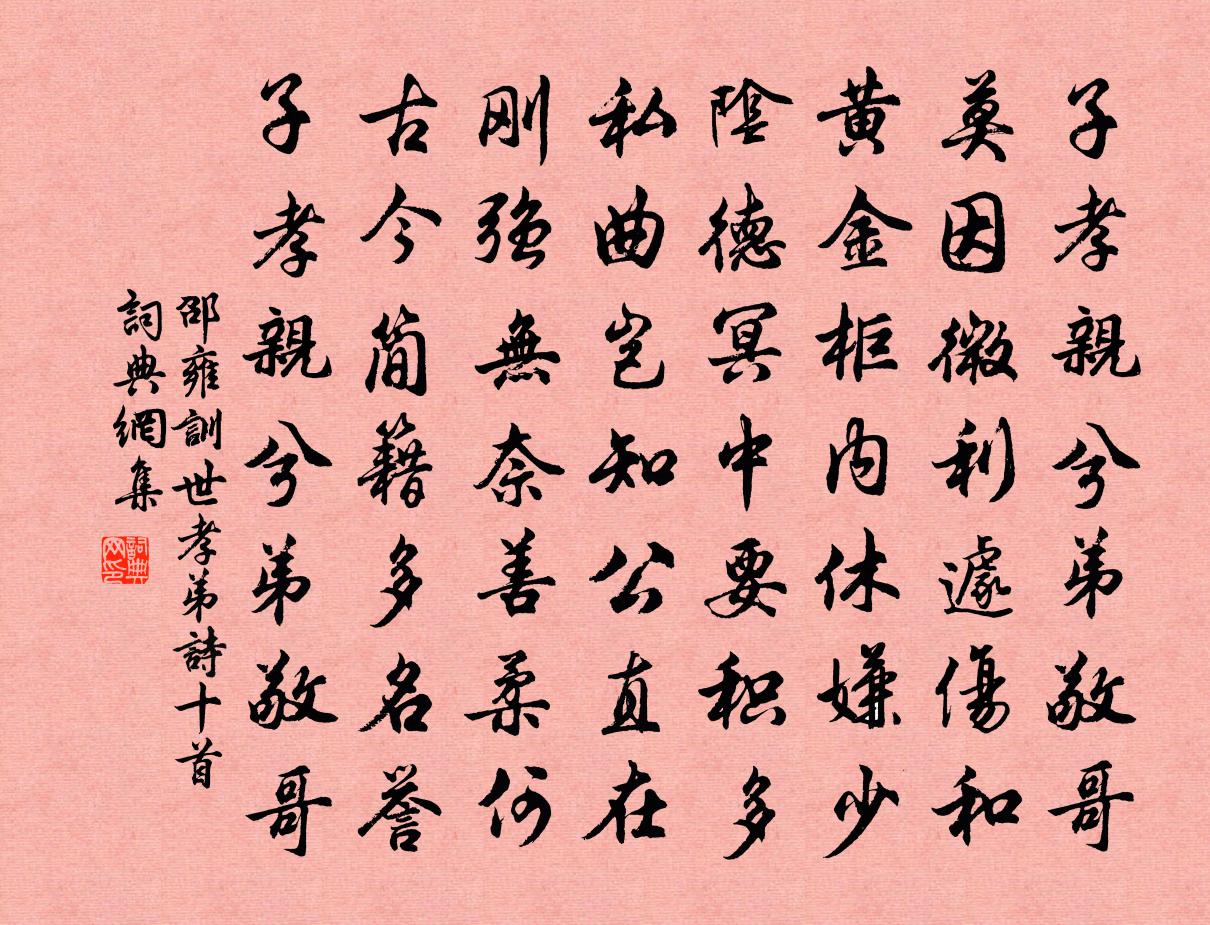 子孝親兮弟敬哥
莫因微利遽傷和
黃金柜内休嫌少
陰德冥中要积多
私曲岂知公直在
刚强無奈善柔何
古今简籍多名誉
子孝親兮弟敬哥
邵雍訓世孝弟詩十首
詞典網集
詞典网印